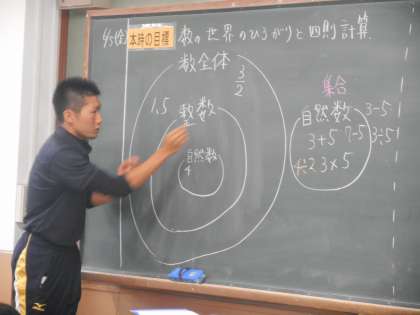 6/5(金) 本時の目標 数の世界のひろがりと四則計算
数全体
3/2
1.5
整数
自然数
4
集合
自然数
3-5
3+5 7-5 3÷5
3×5